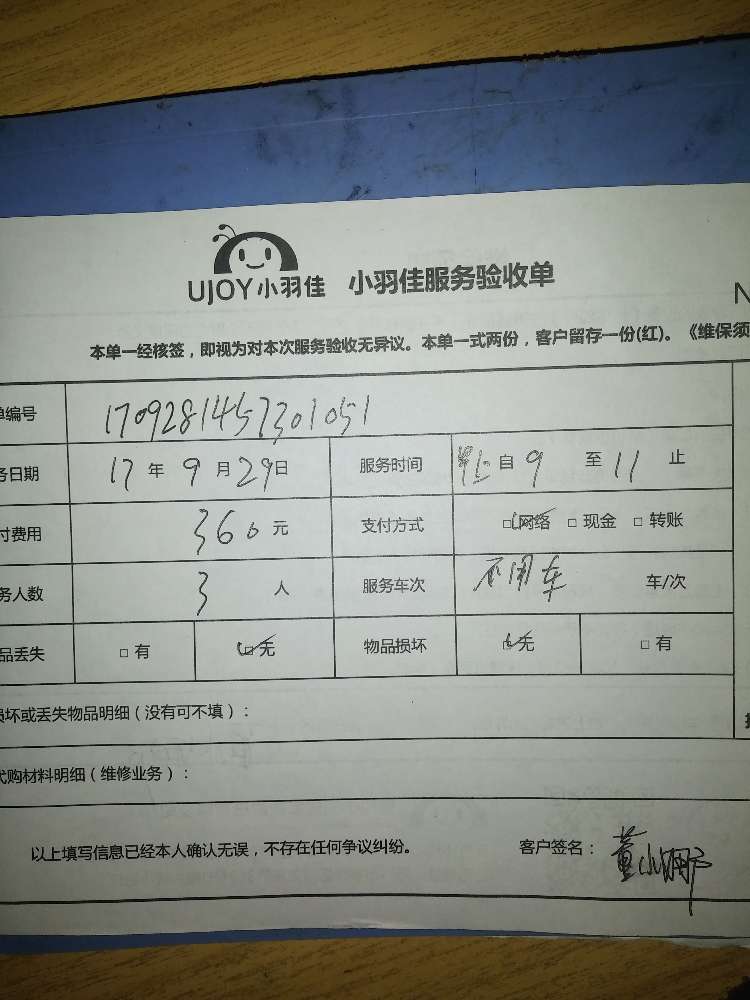 UJOY小羽佳 小羽佳服务验收单
N
本单一经核签，即视为对本次服务验收无异议。本单一式两份，客户留存一份(红)。《维保须
单编号 1709281457301051
务日期 17年9月29日 服务时间 自9至11止
付费用 360元 支付方式 □网络 □现金 □转账
务人数 3人 服务车次 不用车 车/次
品丢失 □有 □无 物品损坏 □无 □有
损坏或丢失物品明细（没有可不填）：
代购材料明细（维修业务）：
以上填写信息已经本人确认无误，不存在任何争议纠纷。 客户签名：董小娜